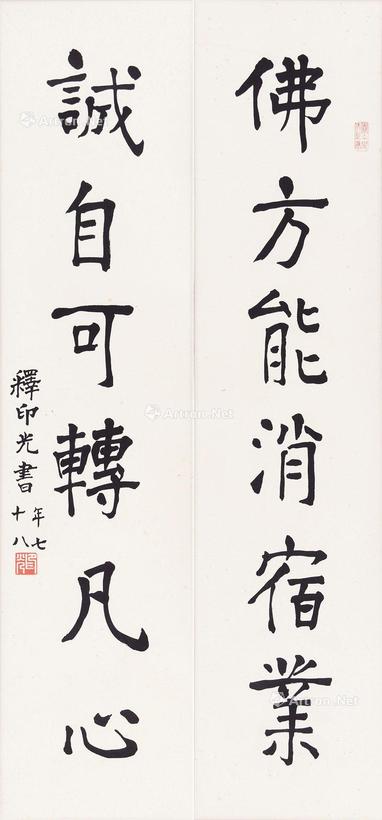 佛方能消宿業
誠自可轉凡心
釋印光書
年七
十八
Artron.Net
Artron.Net
Artron.Net